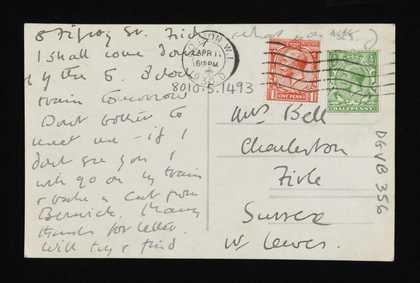 8 Fitzroy St.
I shall come down
by the 5. o'clock
train tomorrow
Don't bother to
meet me – if I
don't see you I
will go on by train
& take a cab from
Berwick. Many
thanks for letter.
Will try & find
LONDON W.1
APR 1
6 15 PM
8010.5.1493
ONE PENNY
HALFPENNY
Mrs Bell
Charleston
Firle
Sussex
Nr Lewes.
DGVB 356